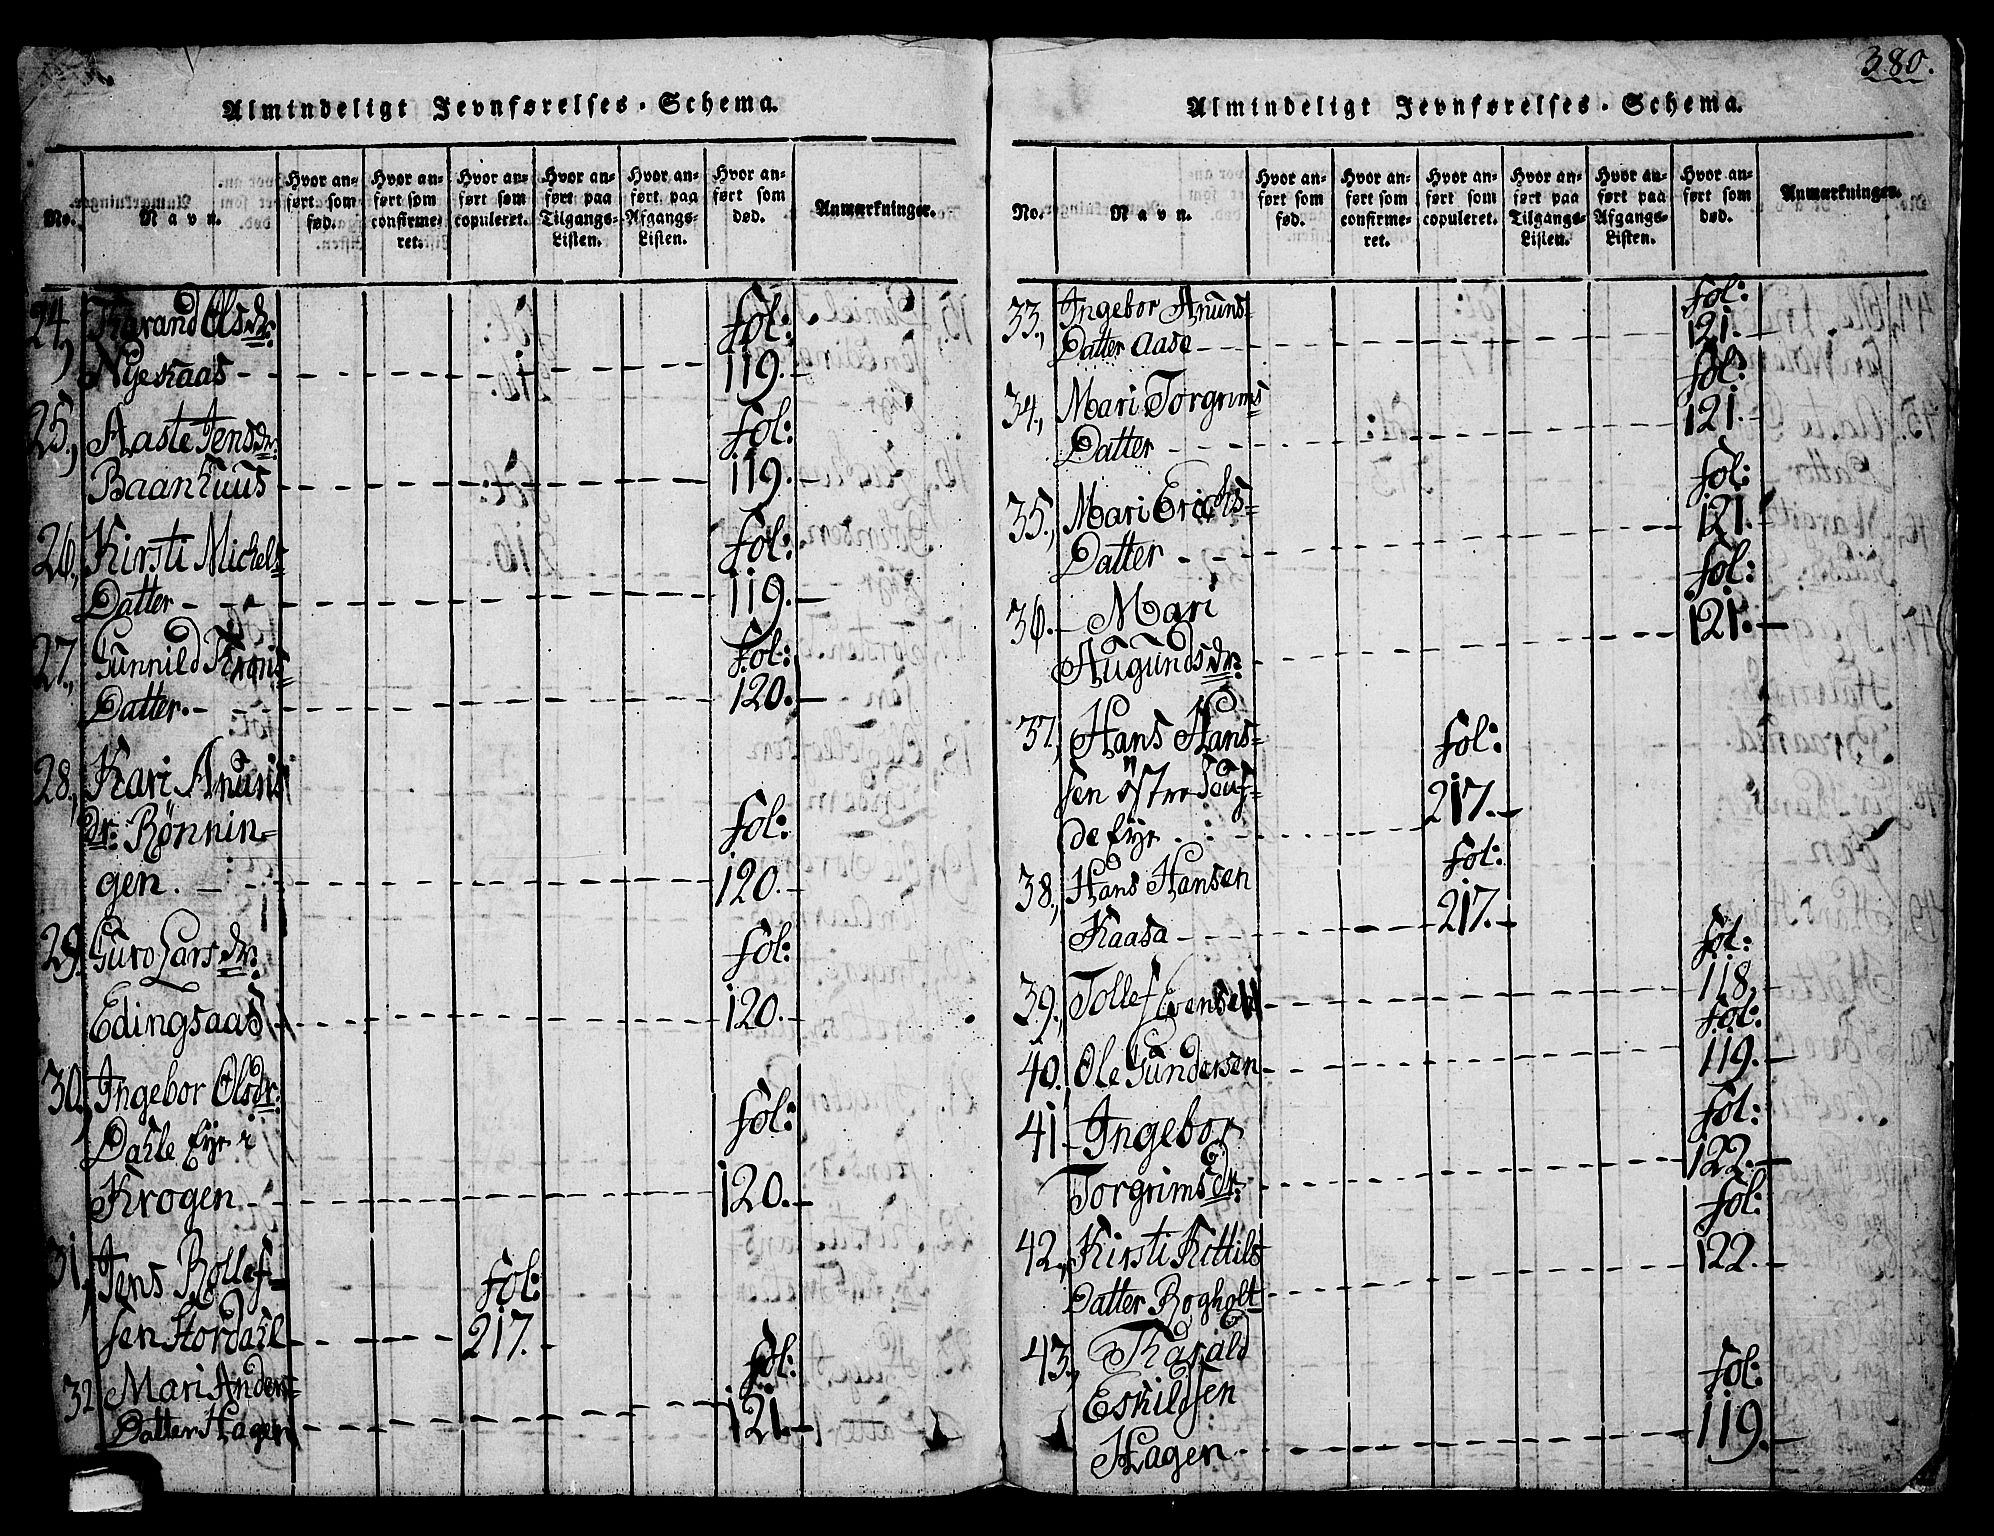 380.
Almindeligt Jevnførelses-Schema.
No.
Navn.
Hvor anført som fød.
Hvor anført som confirmeret.
Hvor anført som copuleret.
Hvor anført paa Tilgangs-Listen.
Hvor anført paa Afgangs-Listen.
Hvor anført som død.
Anmærkninger.
24, Olsdr: Fol:
119.
25, Aaste Jensdr: Fol:
Baanhuus 119.
26, Kirsti Michels= Fol:
Datter 119.
27, Gunnild Fol:
Datter. 120.
28, Kari Anuns
dr: Rønnin= Fol:
gen. 120.
29, Guro Larsdr: Fol:
Edingsaas 120.
30, Ingebor Olsdr: Fol:
Dahle Eyr
Krogen 120.
31, Jens Rollef= Fol:
sen Hordahl 217.
32 Mari Anders= Fol:
Datter Hagen 121.
Almindeligt Jevnførelses-Schema.
No.
Navn.
Hvor anført som fød.
Hvor anført som confirmeret.
Hvor anført som copuleret.
Hvor anført paa Tilgangs-Listen.
Hvor anført paa Afgangs-Listen.
Hvor anført som død.
Anmærkninger.
33, Ingebor Anuns= Fol:
Datter Aase 121.
34, Mari Torgrims= Fol:
Datter 121.
35, Mari Erichs= Fol:
Datter 121.
36. Mari Fol:
Augundsdr: 121.
37, Hans Hans= Fol:
sen østre
de Eyr 217.
38, Hans Hansen Fol:
Kaasa 217.
39, Tollef Evensen Fol: 118.
40. Ole Gundersen Fol: 119.
41 Ingebor Fol:
Torgrimsdr: 122.
42, Kirsti Kittils= Fol:
Datter Bogholt 122.
43, Harald
Eskildsen Fol:
Hagen 119.